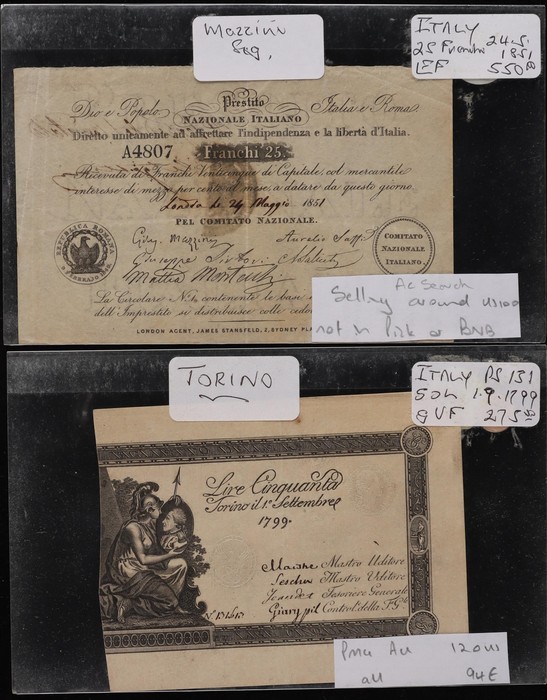 Mazzini
Sig,
ITALY
25 Franchi 24.5.
1851
LEF 550
Dio e Popolo.
Prestito
NAZIONALE ITALIANO
Italia e Roma.
Diretto unicamente ad affrettare l'indipendenza e la libertà d'Italia.
A4807 Franchi 25.
Ricevuta di Franchi Venticinque di Capitale, col mercantile
interesse di mezzo per cento al mese, a datare da questo giorno.
Londra le 24 Maggio 1851
PEL COMITATO NAZIONALE.
REPUBBLICA ROMANA
Gius. Mazzini
Aurelio Saffi
Giuseppe Sirtori
Mattia Montecchi
COMITATO
NAZIONALE
ITALIANO.
La Circolare No. 1, contenente le basi
dell'Imprestito si distribuisce colle cedole
LONDON AGENT, JAMES STANSFELD, 2, SYDNEY PL
Ac Search
Selling around
not in Pick or BNB
TORINO
ITALY PS 131
50L 1.9.1799
gVF 275
Lire Cinquanta
Torino il 1.º Settembre
1799.
Mastro Uditore
Mastro Uditore
Tesoriere Generale
Control.' della F.
PMG AU 120
AU 94£